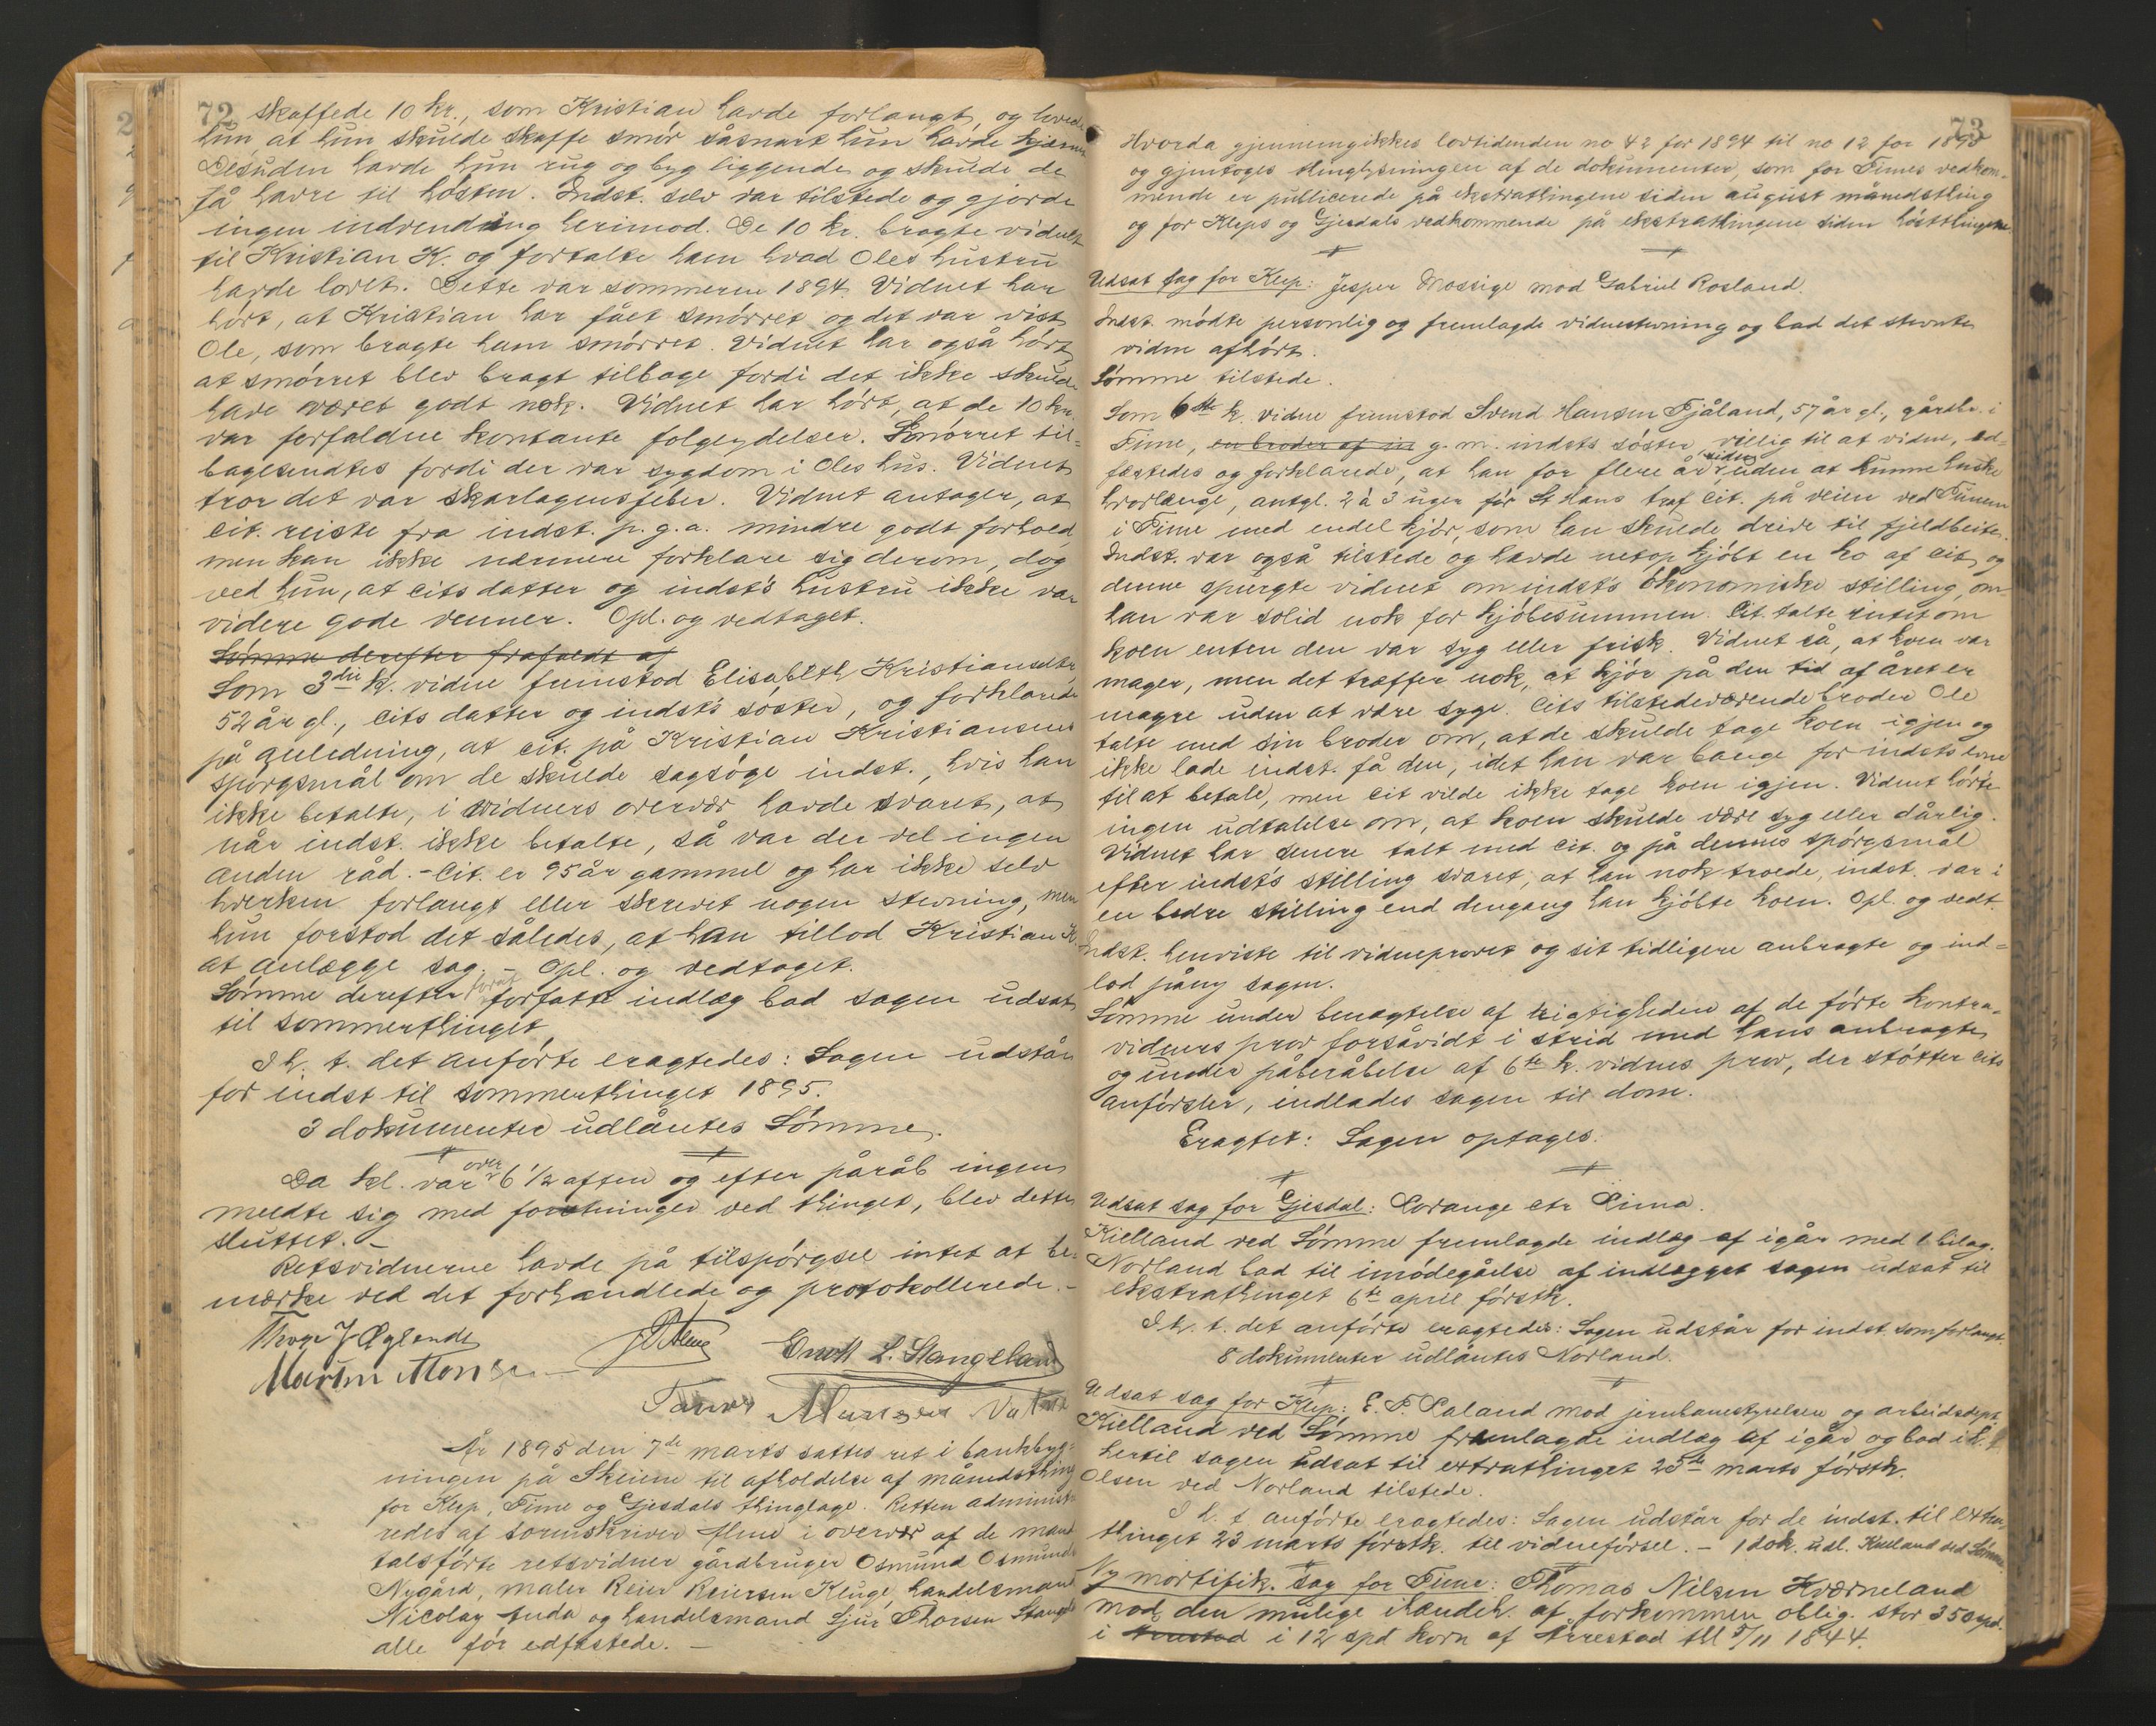 72
skaffede 10 kr., som Kristian havde forlangt, og lovede
hun, at hun skulde skaffe smör såsnart hun havde kjærnet
Desuden havde hun rug og byg liggende og skulde de
få havre til hösten. Indst. selv var tilstede og gjorde
ingen indvending herimod. De 10 kr. bragte vidnet
til Kristian K. og fortalte ham hvad Oles hustru
havde lovet. Dette var sommeren 1894. Vidnet har
hört, at Kristian har fået smörret og det var vist
Ole, som bragte ham smörret. Vidnet har også hört,
at smörret blev bragt tilbage fordi det ikke skulde
have været godt nok. Vidnet har hört, at de 10 kr.
var forfaldne kontante folgeydelser. Smörret til-
bagesendtes fordi der var sygdom i Oles hus. Vidnet
tror det var skarlagensfeber. Vidnet antager, at
cit. reiste fra indst. p. g. a. mindre godt forhold
men kan ikke nærmere forklare sig derom, dog
ved hun, at cits datter og indst's hustru ikke var
videre gode venner. Opl. og vedtaget.
Sömme derefter frafaldt af
Som 3die k. vidne fremstod Elisabeth Kristiansdtr
52 år gl., cits datter og indst's söster, og forklarede
på anledning, at cit. på Kristian Kristiansens
spörgsmål om de skulde sagsöge indst., hvis han
ikke betalte, i vidners overvær havde svaret, at
når indst. ikke betalte, så var der vel ingen
anden råd. - Cit. er 95 år gammel og har ikke selv
hverken forlangt eller skrevet nogen stevning, men
hun forstod det således, at han tillod Kristian K.
at anlægge sag. - Opl. og vedtaget.
Sömme derefter forat forfatte indlæg bad sagen udsat
til sommerthinget.
I h. t. det anförte eragtedes: Sagen udstår
for indst til sommerthinget 1895.
3 dokumenter udlåntes Sömme.
Da kl. var over 6 1/2 aften og efter påråb ingen
meldte sig med forretninger ved thinget, blev dette
sluttet. -
Retsvidnerne havde på tilspörgsel intet at be-
mærke ved det forhandlede og protokollerede. -
Thore J Øglende
Martin Monsen
Enok L. Stangeland
År 1895 den 7de marts sattes ret i bankbyg-
ningen på Skeiene til afholdelse af månedsthing
for Klep, Time og Gjesdals thinglage. Retten administ-
redes af sorenskriver i overvær af de mand
talsförte retsvidner gårdbruger Osmund Osmunds
Nygård, maler Reier Reiersen Kluge, handelsmand
Nicolay Juda og handelsmand Sjur Thorsen Stangel
alle för edfæstede. -
73
Hvorda gjennemgikkes lovtidenden no 42 for 1894 til no 12 for 1895
og gjentoges thinglysningen af de dokumenter, som for Times vedkom-
mende er publicerede på ekstrathingene siden august månedsthing
og for Kleps og Gjesdals vedkommende på ekstrathingene siden hösttingene.
Udsat sag for Klep: Jesper Mossige mod Gabriel Rosland.
Indst. mödte personlig og fremlagde vidnestevning og bad det stevnte
vidne afhört.
Sömme tilstede.
Som 6te k. vidne fremstod Svend Hansen Fjåland, 57 år gl., gårdbr. i
Time, en broder af in g. m. indsts söster, villig til at vidne, ed-
fæstedes og forklarede, at han for flere år siden, uden at kunne huske
hvorlænge, antgl. 2 à 3 uger för St Hans traf cit. på veien ved Tunem
i Time med endel kjör, som han skulde drive til fjeldbeite.
Indst. var også tilstede og havde netop kjöbt en ko af cit, og
denne spurgte vidnet om indst's ökonomiske stilling, om
han var solid nok for kjöbesummen. Cit. talte intet om
koen enten den var syg eller frisk. Vidnet så, at koen var
mager, men det træffer nok, at kjör på den tid af året er
magre uden at være syge. Cits tilstedeværende broder Ole
talte med sin broder om, at de skulde tage koen igjen og
ikke lade indst. få den, idet han var bange for indsts evne
til at betale, men cit vilde ikke tage koen igjen. Vidnet hörte
ingen udtalelse om, at koen skulde være syg eller dårlig.
Vidnet har senere talt med cit. og på dennes spörgsmål
efter indst's stilling svaret, at han nok troede, indst. var i
en bedre stilling end dengang han kjöbte koen. Opl. og vedt.
Indst. henviste til vidneprovet og sit tidligere anbragte og ind-
lod påny sagen.
Sömme under benægtelse af rigtigheden af de förte kontra-
vidners prov forsåvidt i strid med hans anbragte
og under påberåbelse af 6te k. vidnes prov, der stötter cits
anförsler, indlades sagen til dom.
Eragtet: Sagen optages.
Udsat sag for Gjesdal: Lorange ctr Lima.
Kielland ved Sömme fremlagde indlæg af igår med 1 bilag.
Norland bad til imödegåelse af indlægget sagen udsat til
ekstrathinget 6te april förstk.
I h. t. det anförte eragtedes: Sagen udstår for indst. som forlangt.
8 dokumenter udlåntes Norland.
Udsat sag for Klep: E. F. Laland mod jernbanestyrelsen og arbeidsdept.
Kielland ved Sömme fremlagde indlæg af igår og bad i h. t.
hertil sagen udsat til extrathinget 23de marts förstk.
Olsen ved Norland tilstede.
I h. t. anförte eragtedes: Sagen udstår for de indst. til extra
thinget 23 marts förstk. til vidneförsel. - 1 dok. udl. Kielland ved Sömme.
Ny mortifik. sag for Time: Thomas Nilsen Kværneland
mod den mulige ihændeh. af forkommen oblig. stor 350 spd.
i i 12 spd korn af Årrestad thl 5/11 1844.